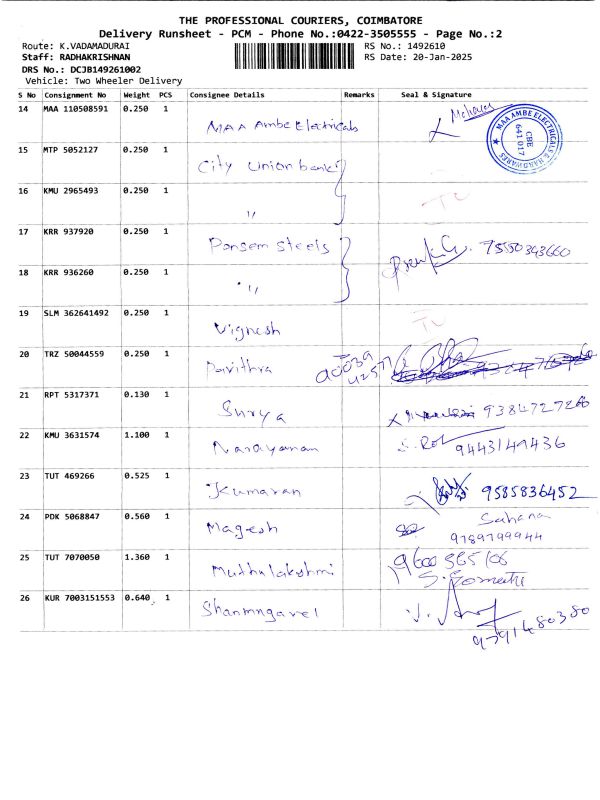 THE PROFESSIONAL COURIERS, COIMBATORE
Delivery Runsheet - PCM - Phone No.:0422-3505555 - Page No.:2
Route: K.VADAMADURAI RS No.: 1492610
Staff: RADHAKRISHNAN RS Date: 20-Jan-2025
DRS No.: DCJB149261002
Vehicle: Two Wheeler Delivery
S No Consignment No Weight PCS Consignee Details Remarks Seal & Signature
14 MAA 110508591 0.250 1 MAA Ambe Electricals
MAA AMBE ELECTRICALS & HARDWARES
CBE
641 017
15 MTP 5052127 0.250 1 City Union bank
16 KMU 2965493 0.250 1 "
17 KRR 937920 0.250 1 Ponsem Steels 7550343660
18 KRR 936260 0.250 1 "
19 SLM 362641492 0.250 1 Vignesh
20 TRZ 50044559 0.250 1 Pavithra
21 RPT 5317371 0.130 1 Surya 9384727266
22 KMU 3631574 1.100 1 Narayanan 9443149436
23 TUT 469266 0.525 1 Kumaran 9585836452
24 PDK 5068847 0.560 1 Magesh Sahana
9789799944
25 TUT 7070050 1.360 1 Muthulakshmi
26 KUR 7003151553 0.640 1 Shanmugavel
9791480380